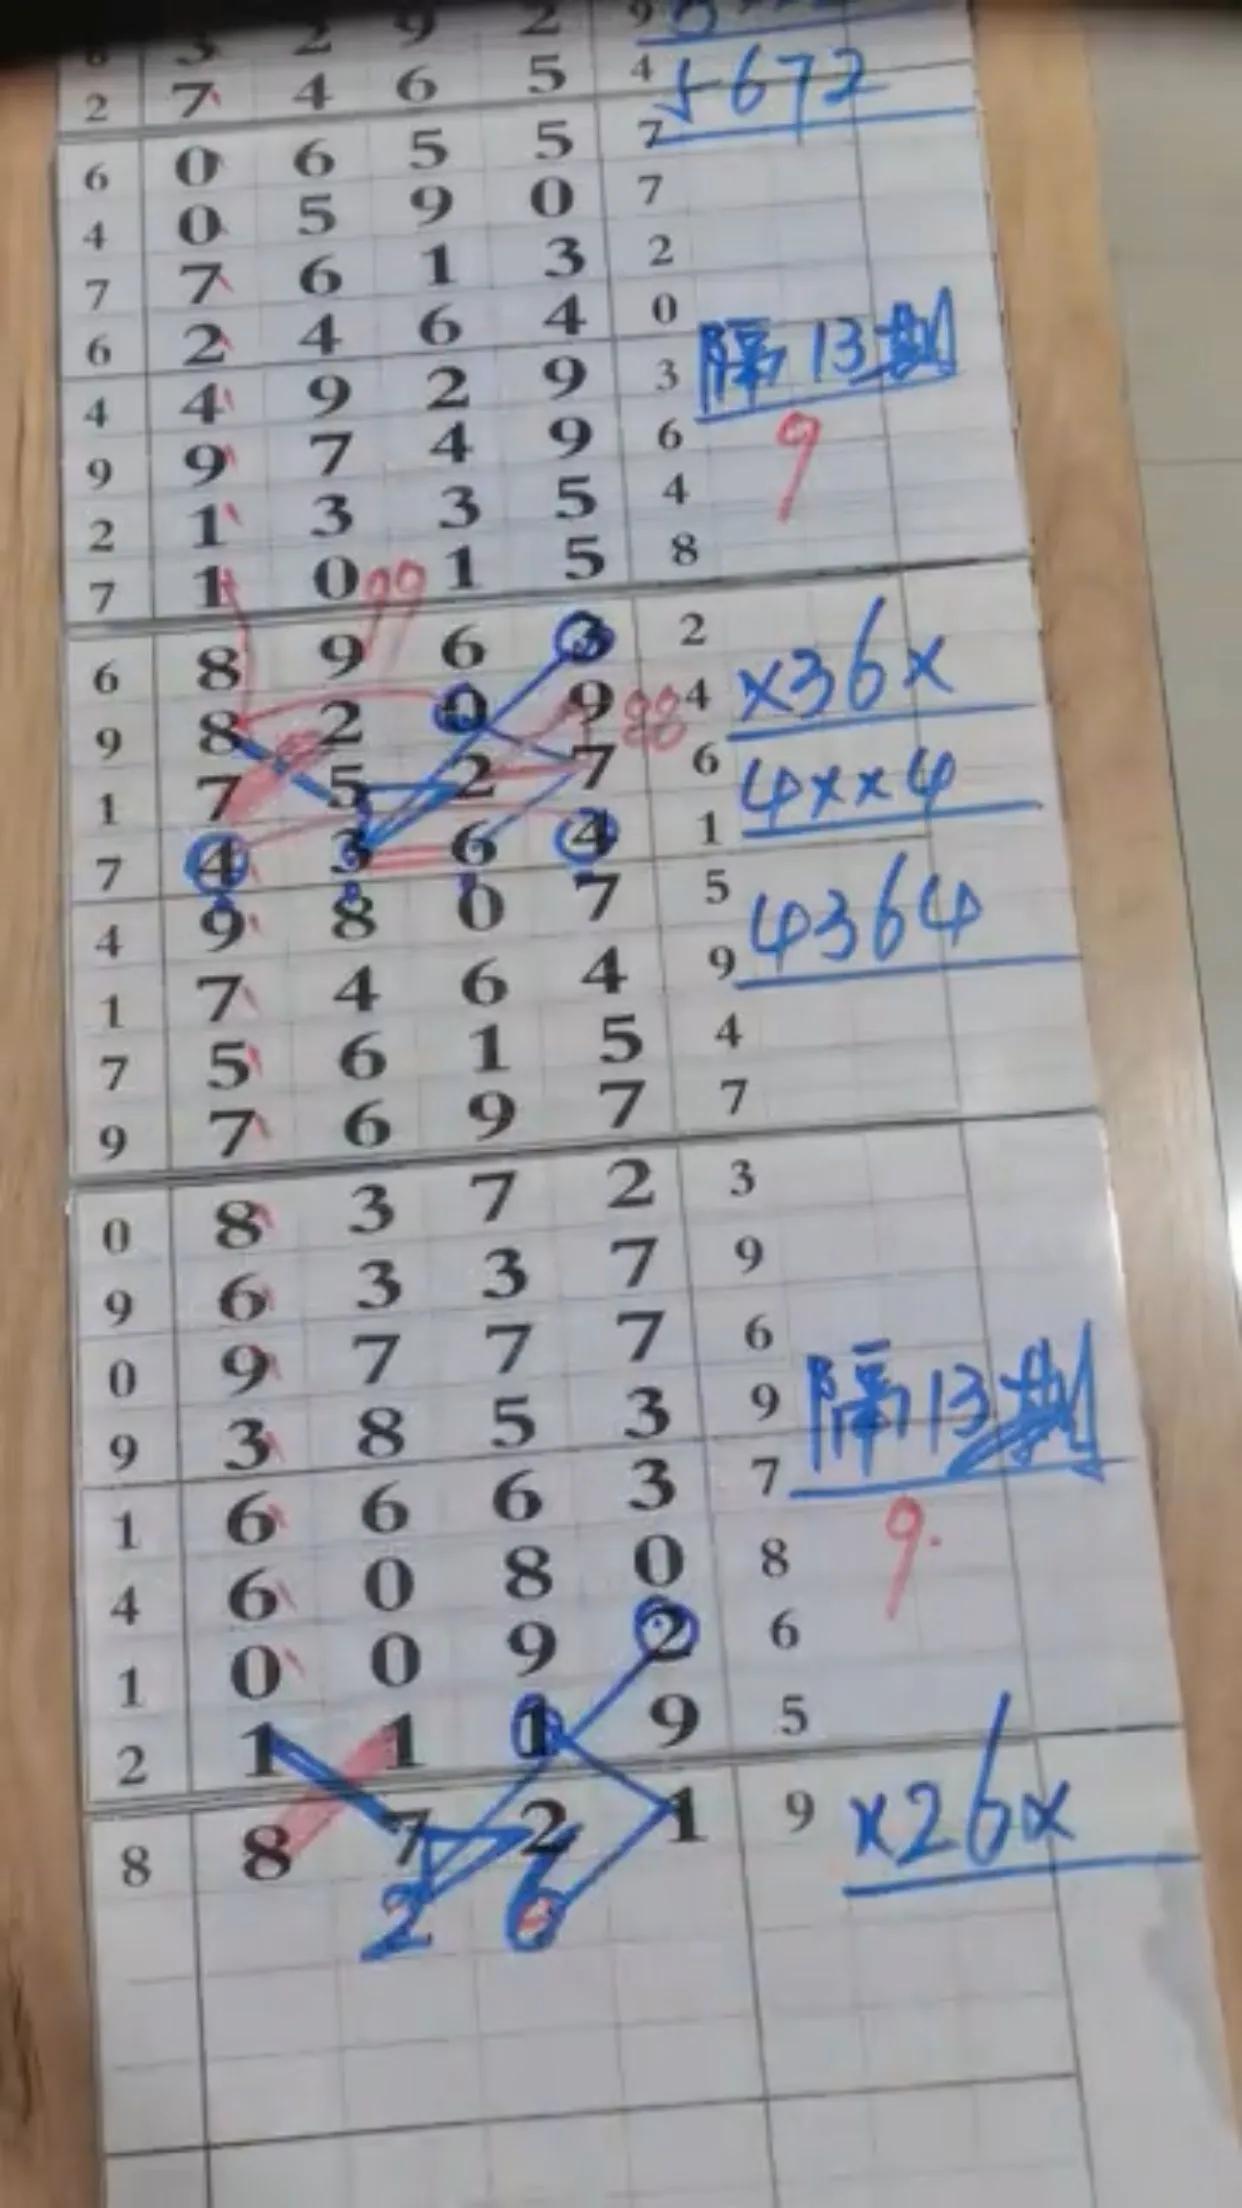 3 2 9 2 9
2 7 4 6 5 4 5672
6 0 6 5 5 7
4 0 5 9 0 7
7 7 6 1 3 2
6 2 4 6 4 0 隔13期
4 4 9 2 9 3
9 9 7 4 9 6 9
2 1 3 3 5 4
7 1 0 1 5 8
99
6 8 9 6 3 2 x36x
9 8 2 0 9 4
88
1 7 5 2 7 6 4xx4
7 4 3 6 4 1
4 9 8 0 7 5 4364
1 7 4 6 4 9
7 5 6 1 5 4
9 7 6 9 7 7
0 8 3 7 2 3
9 6 3 3 7 9
0 9 7 7 7 6
9 3 8 5 3 9 隔13期
1 6 6 6 3 7
4 6 0 8 0 8 9.
1 0 0 9 2 6
2 1 1 1 9 5
8 8 7 2 1 9 x26x
2 6